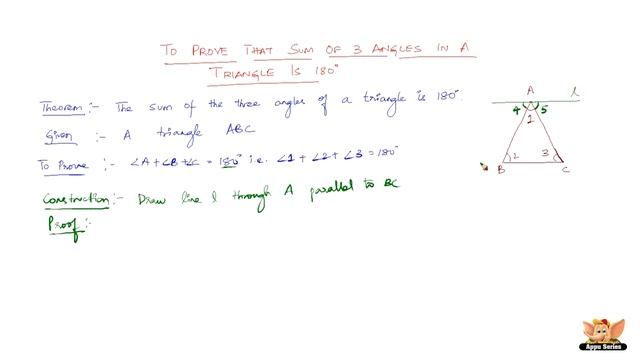 TO PROVE THAT SUM OF 3 ANGLES IN A
TRIANGLE IS 180°
Theorem :- The sum of the three angles of a triangle is 180°.
Given :- A triangle ABC
To Prove :- ∠A+∠B+∠C = 180° i.e. ∠1 + ∠2 + ∠3 = 180°
Construction :- Draw line l through A parallel to BC
Proof :-
A l
4 5
1
2 3
B C
Appu Series